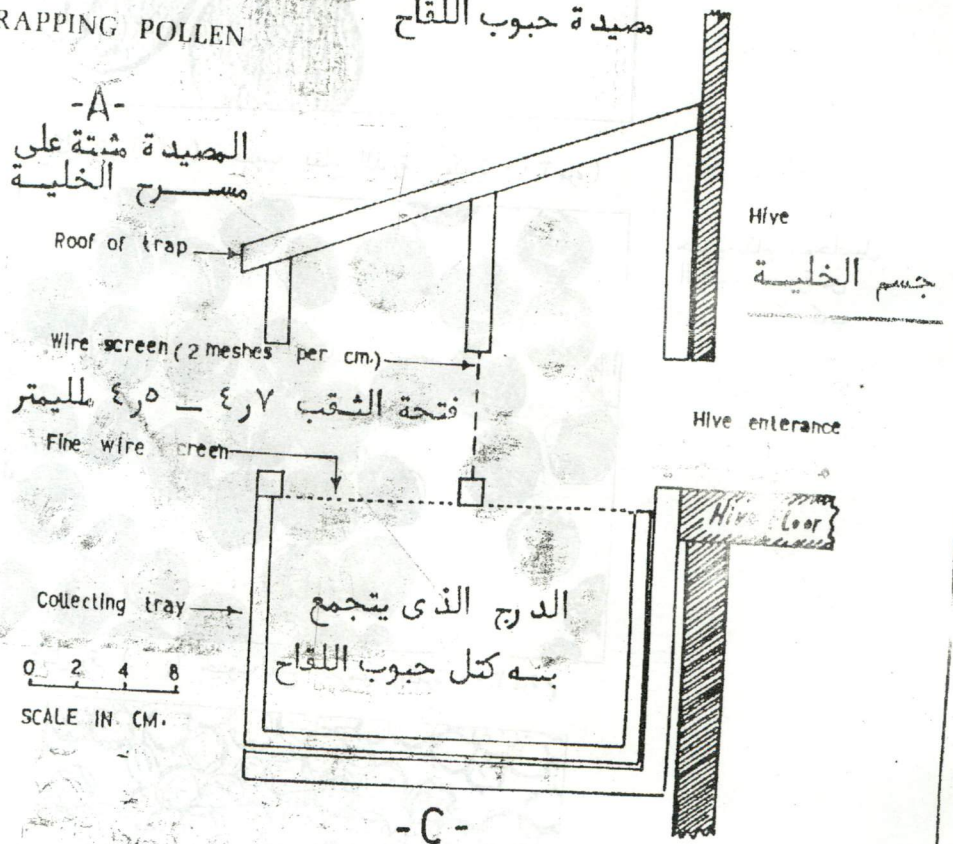 RAPPING POLLEN
مصيدة حبوب اللقاح
-A-
المصيدة مثبتة على
مســرح الخليــة
Roof of trap
Hive
جسم الخليــة
Wire screen (2 meshes per cm.)
فتحة الثقب ٤٫٧ _ ٤٫٥ ملليمتر
Hive enterance
Fine wire creen
Hive loor
Collecting tray
الدرج الذى يتجمع
بنــه كتل حبوب اللقاح
0 2 4 8
SCALE IN CM.
-C-